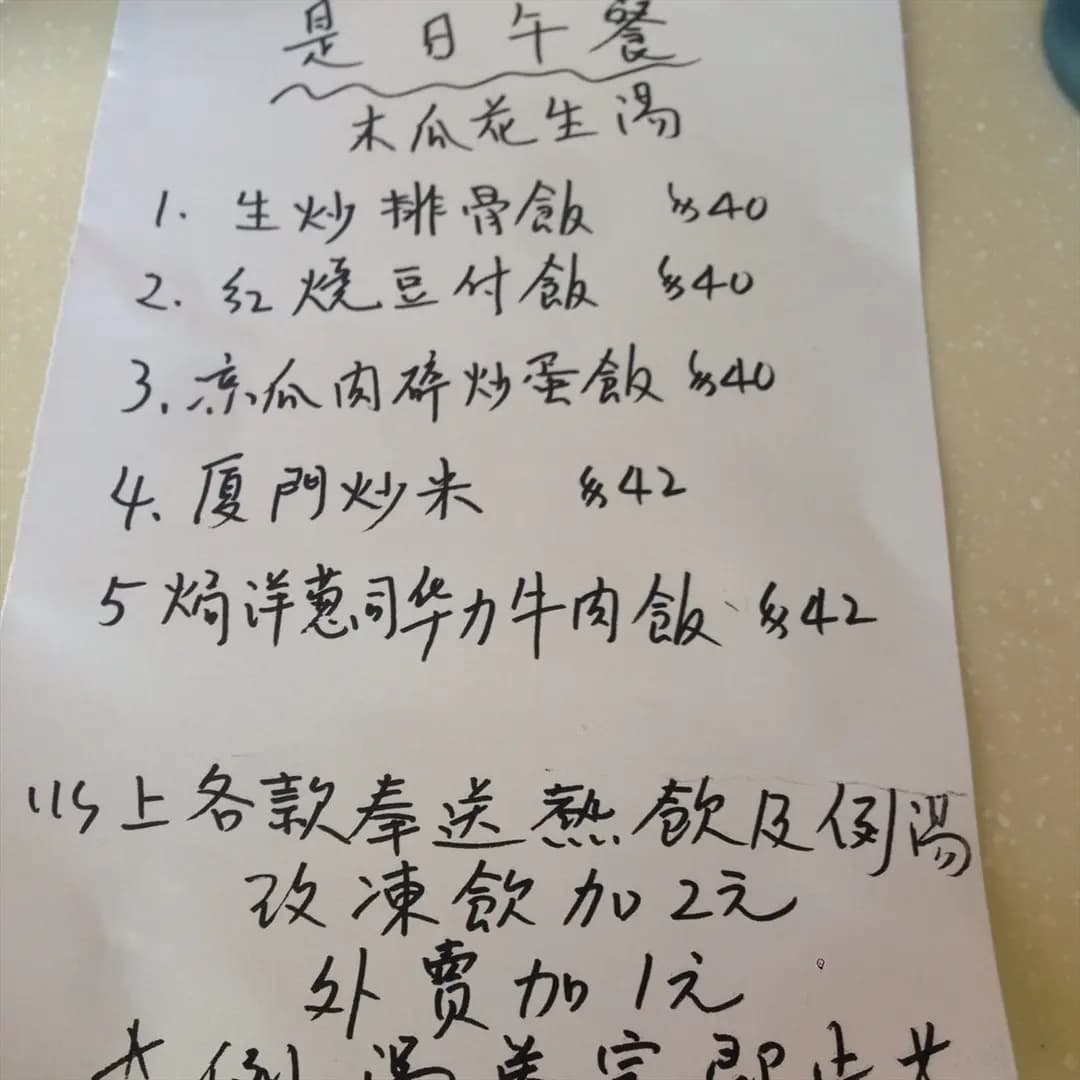 是日午餐
木瓜花生湯
1. 生炒排骨飯 $40
2. 紅燒豆付飯 $40
3. 凉瓜肉碎炒蛋飯 $40
4. 厦門炒米 $42
5 焗洋蔥司华力牛肉飯 $42
以上各款奉送熱飲及例湯
改凍飲加2元
外賣加1元
例湯送完即止